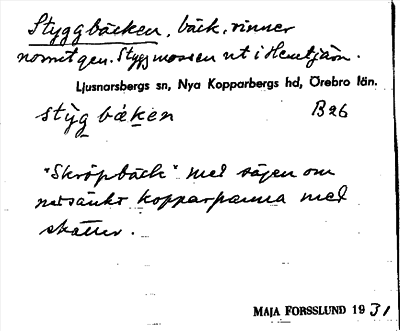 Styggbäcken, bäck, rinner
norrut gen. Styggmossen ut i Hemtjärn.
Ljusnarsbergs sn, Nya Kopparbergs hd, Örebro län.
stỳg bäken B26
"Skröpbäck" med sägen om
nedsänkt kopparpanna med
skatter.
MAJA FORSSLUND 1931